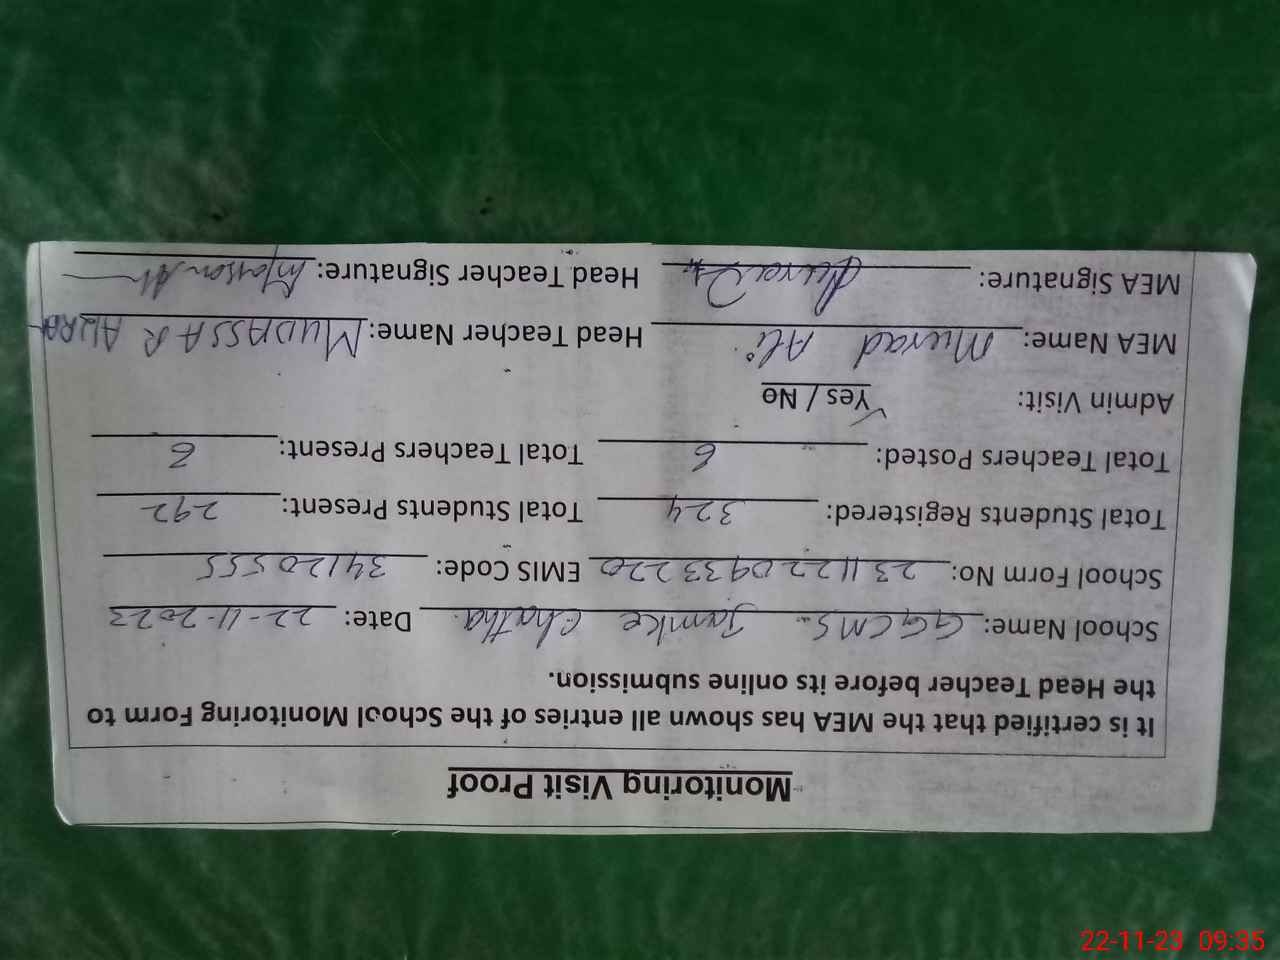 Monitoring Visit Proof
It is certified that the MEA has shown all entries of the School Monitoring Form to
the Head Teacher before its online submission.
School Name: GGCMS. Jamke Chatha. Date: 22-11-2023
School Form No: 2311220933220 EMIS Code: 34120555
Total Students Registered: 324 Total Students Present: 292
Total Teachers Posted: 6 Total Teachers Present: 6
Admin Visit: Yes / No
MEA Name: Murad Ali Head Teacher Name: MUDASSAR
MEA Signature: Head Teacher Signature:
22-11-23 09:35